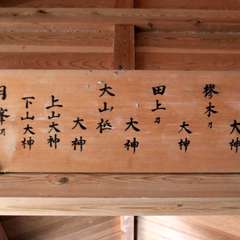 大神
木乃
大神
田上乃
大神
大山祇
大神
上山大神
下山大神
月峯乃